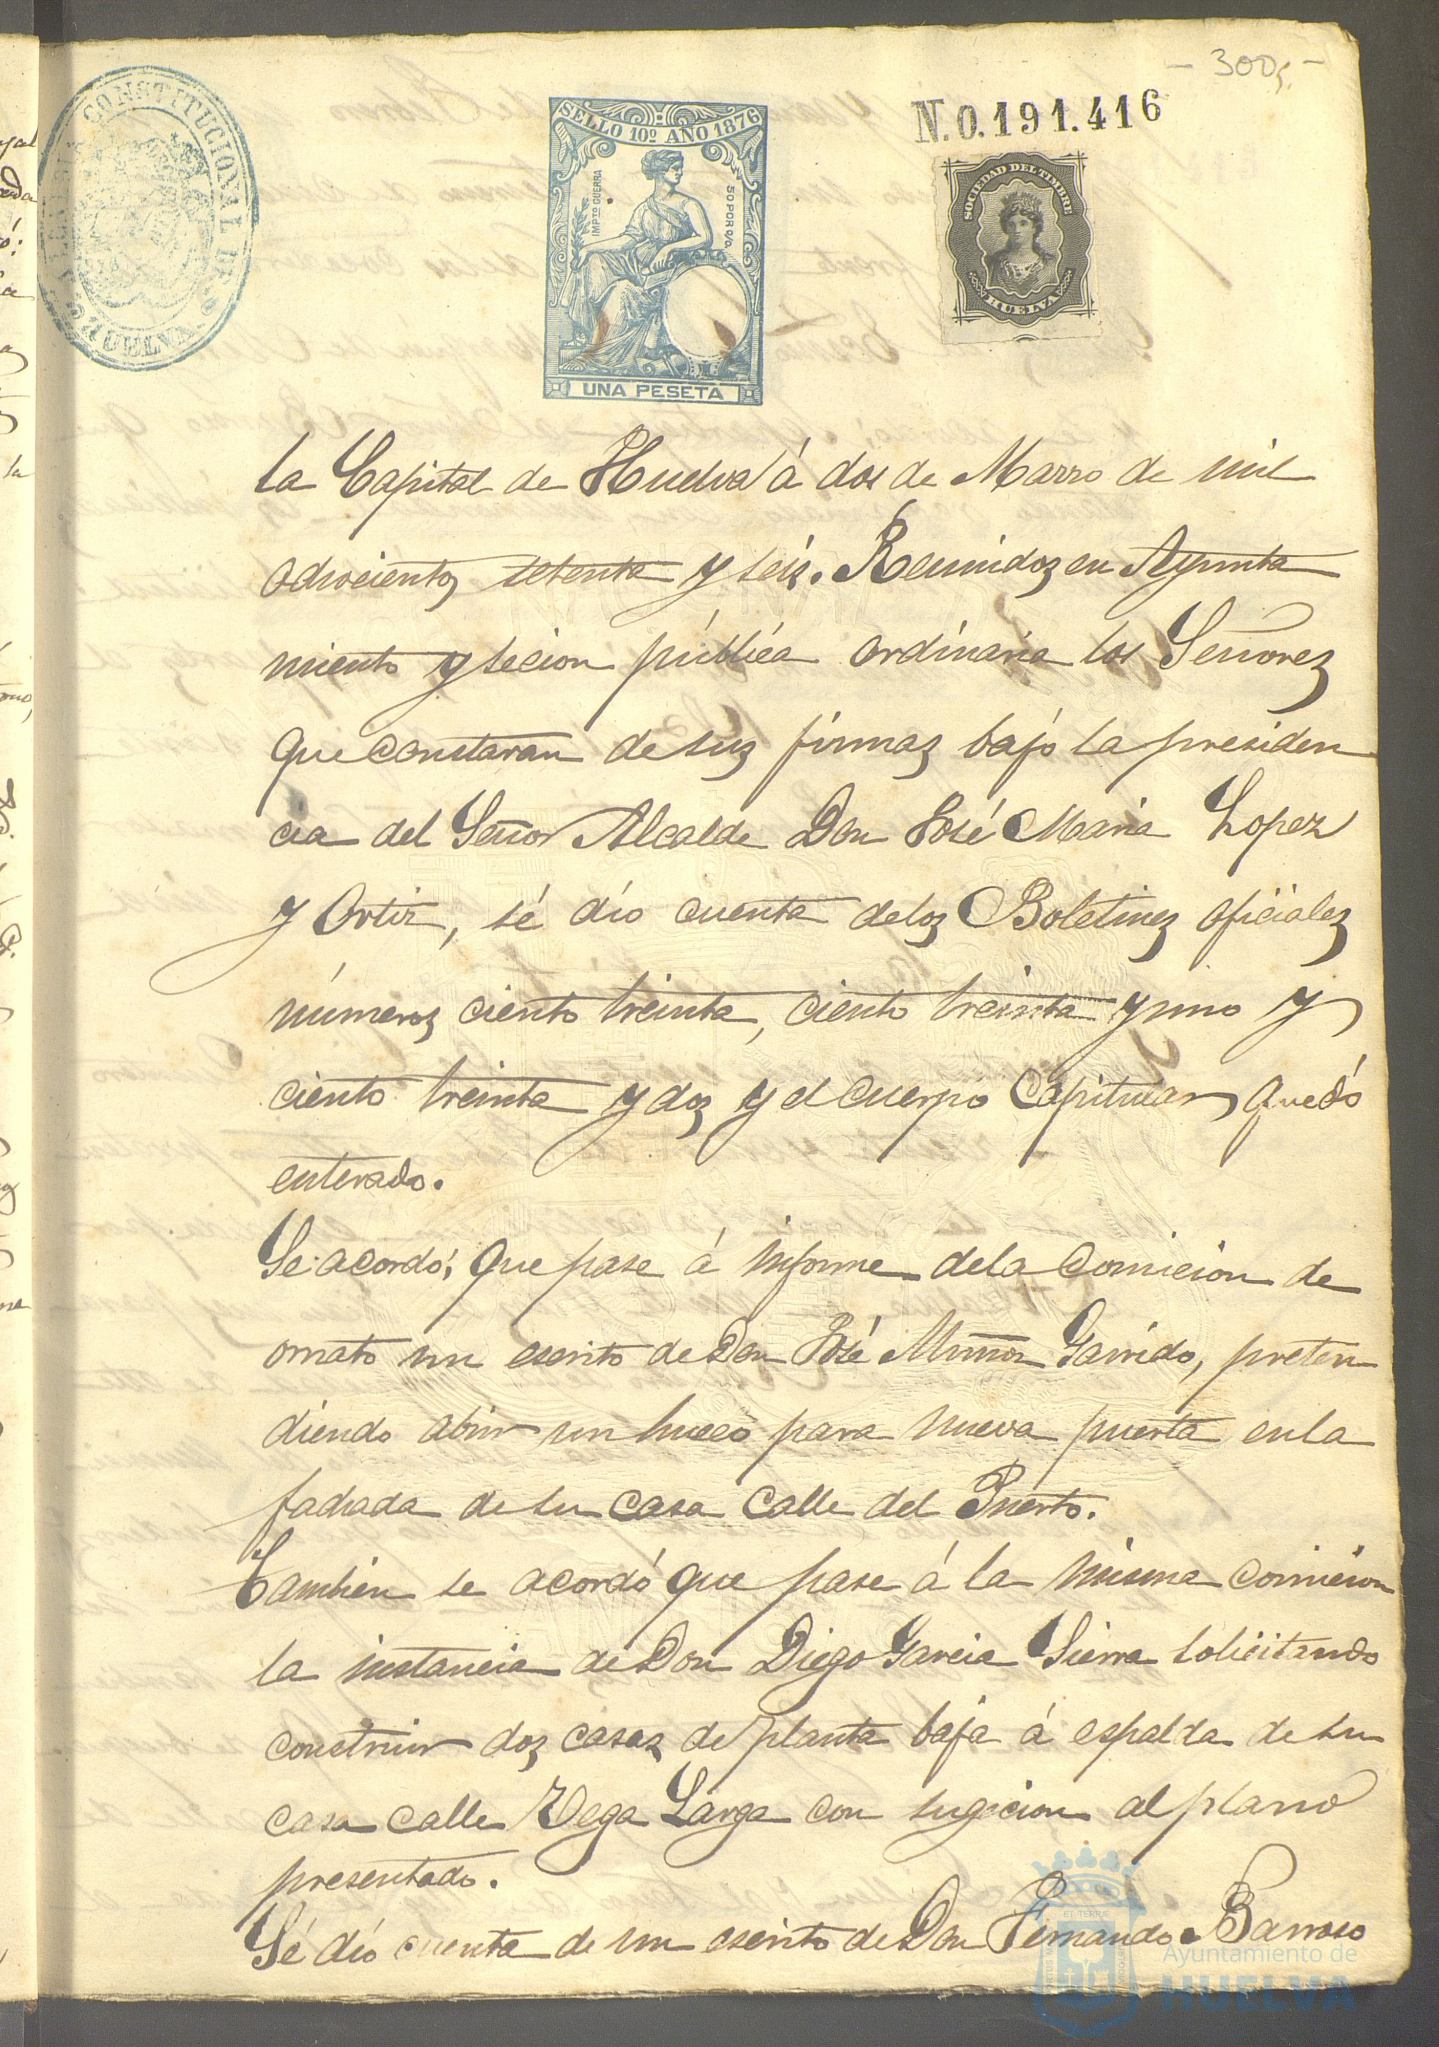 - 300 -
N.0.191.416
ALCALDIA CONSTITUCIONAL DE HUELVA
SELLO 10º AÑO 1876
IMPTO GUERRA
50 POR 0/0
UNA PESETA
SOCIEDAD DEL TIMBRE
HUELVA
la Capital de Huelva á dos de Marzo de mil
odrocientos setenta y seis. Reunidos en Ayunta
miento y secion pública ordinaria los Señores
que constaran de sus firmas bajo la presiden
cia del Señor Alcalde Don José Maria Lopez
y Ortiz, sé dío cuenta delos Boletines oficiales
números ciento treinta, ciento treinta y uno y
ciento treinta y dos y el cuerpo Capitular quedó
enterado.
Se acordó, que pase á informe dela Comicion de
ornato un escrito de Don José Muñoz Garrido, preten
diendo abrir un hueco para nueva puerta en la
fachada de su casa calle del Puerto.
Tambien se acordó que pase á la misma comicion
la instancia de Don Diego Garcia Sierra solicitando
construir dos casas de planta baja á espalda de su
casa calle Vega Larga con sugicion al plano
presentado.
Sé dío cuenta de un escrito de Don Fernando Barroso
Ayuntamiento de
HUELVA